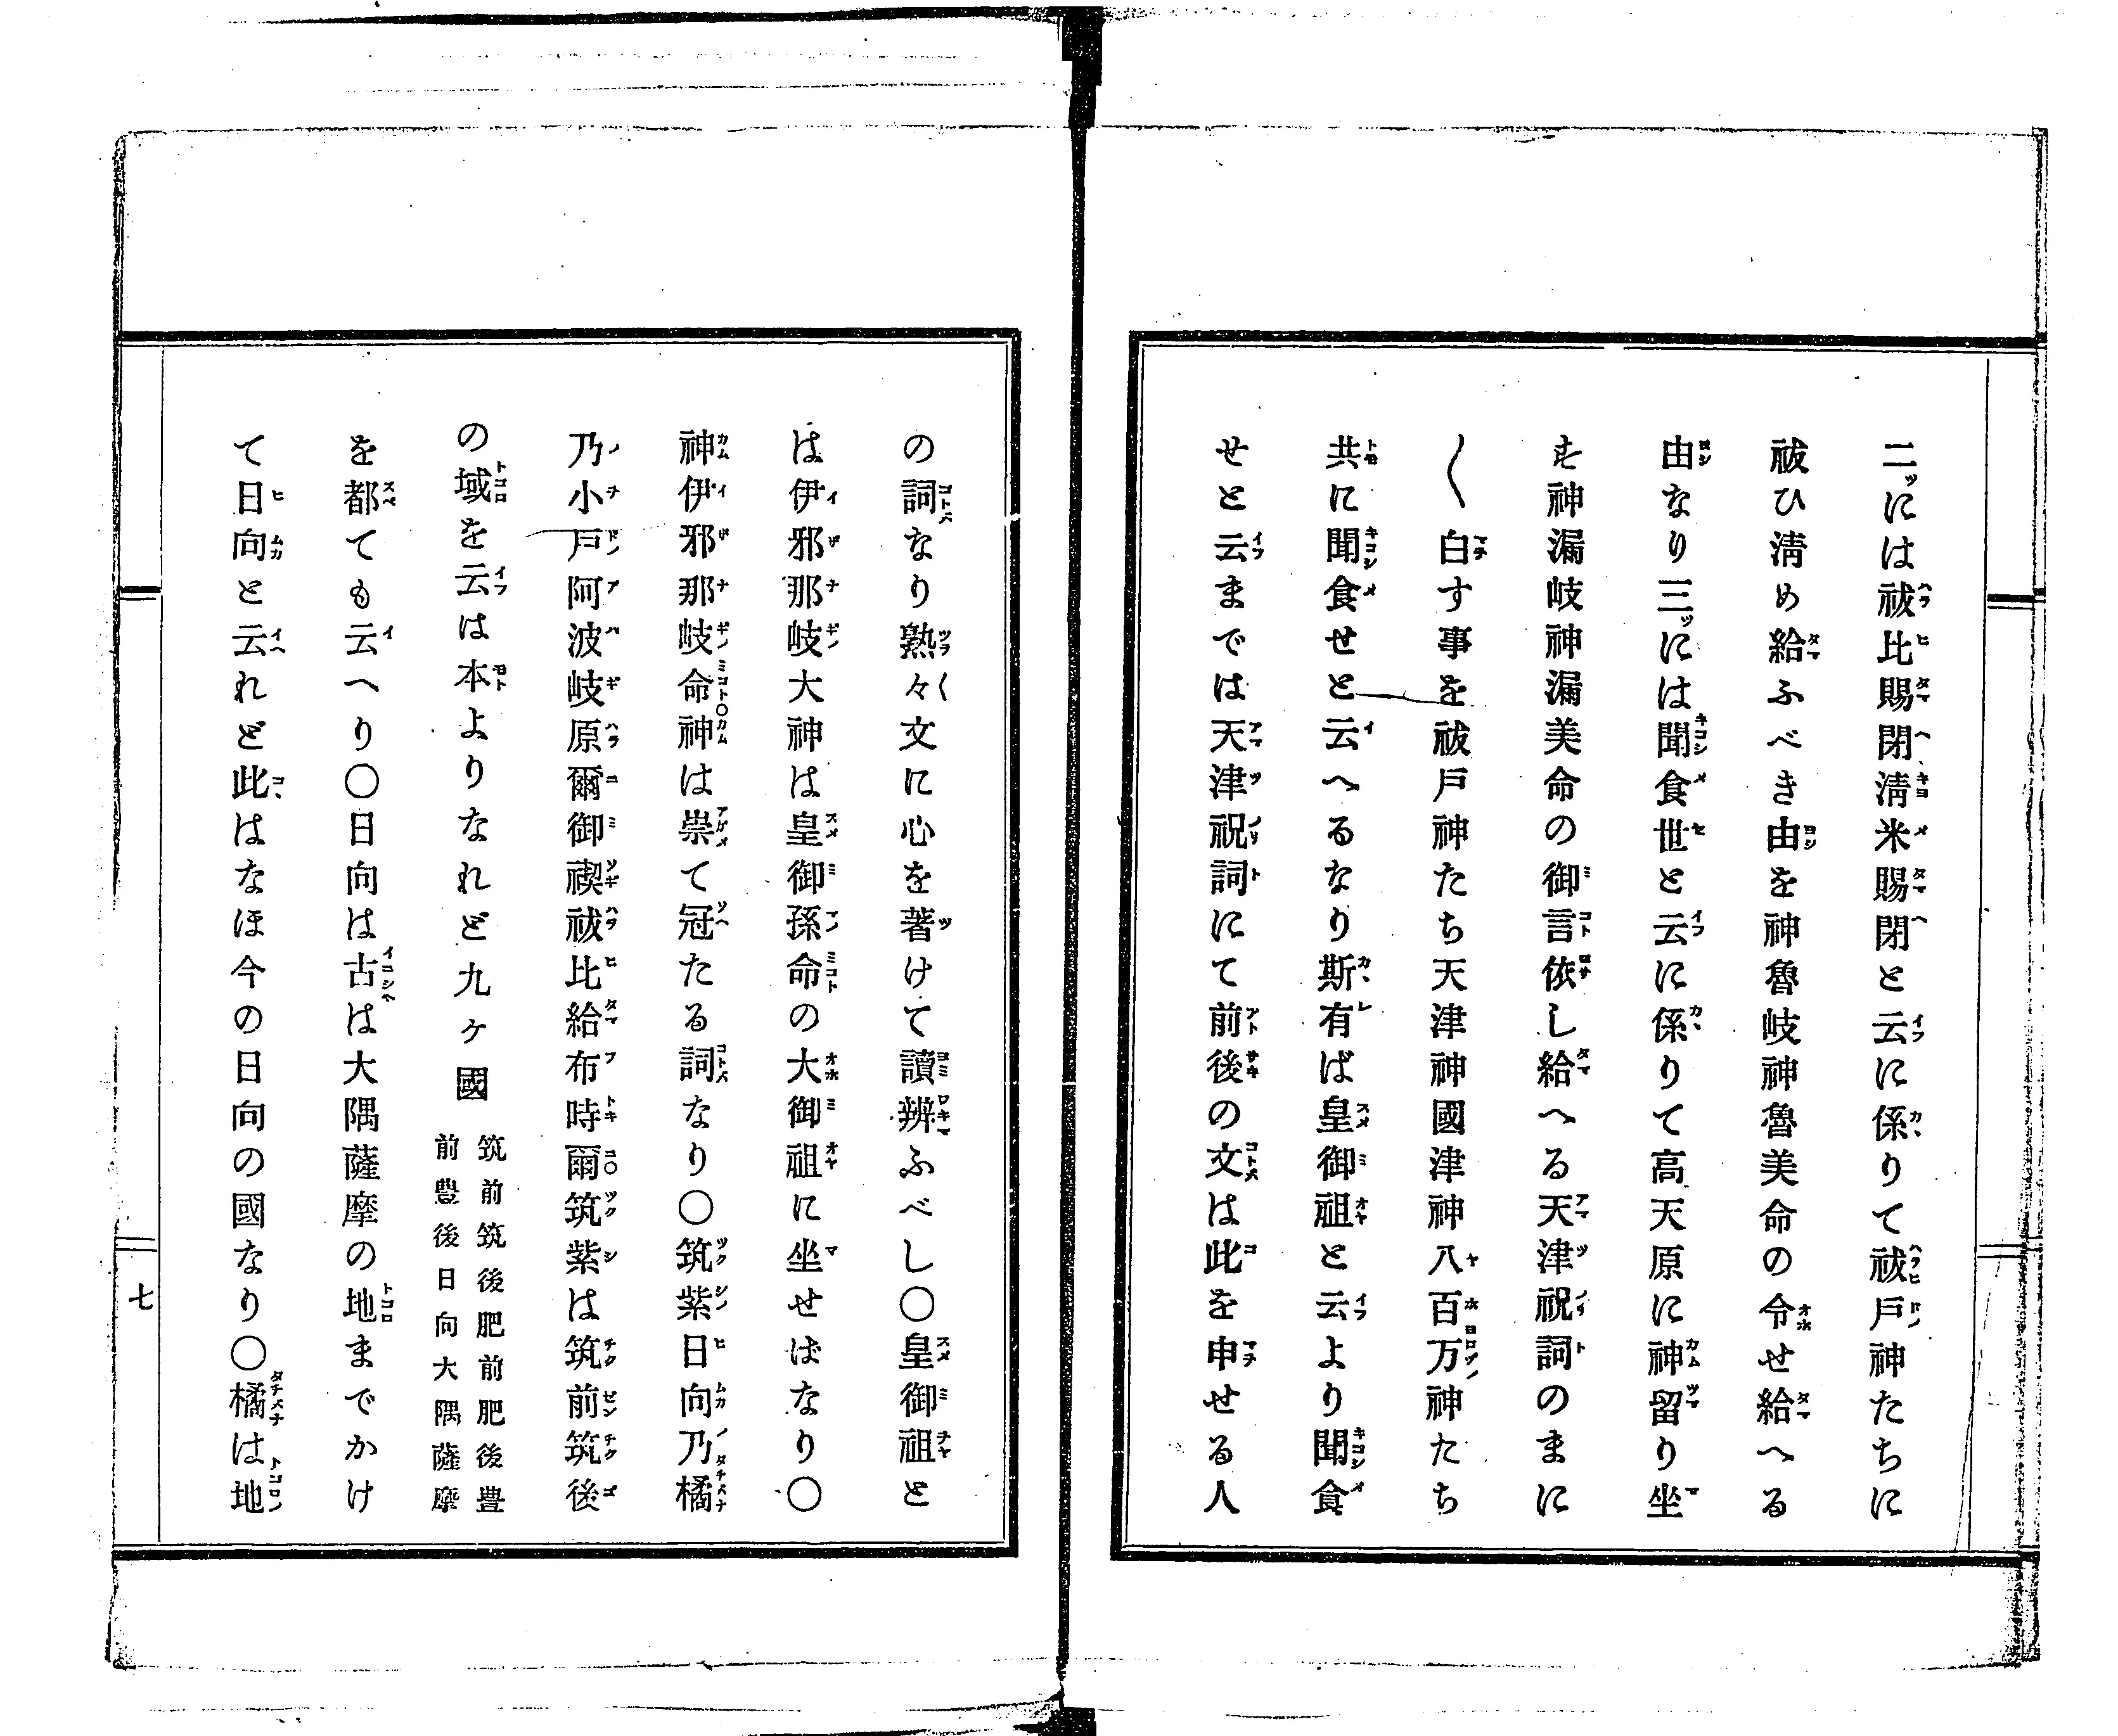 二ッには祓比賜閉淸米賜閉と云に係りて祓戸神たちに
祓ひ淸め給ふべき由を神魯岐神魯美命の令せ給へる
由なり三ッには聞食世と云に係りて高天原に神留り坐
す神漏岐神漏美命の御言依し給へる天津祝詞のまに
〱白す事を祓戸神たち天津神國津神八百万神たち
共に聞食せと云へるなり斯有ば皇御祖と云より聞食
せと云までは天津祝詞にて前後の文は此を申せる人
の詞なり熟々文に心を著けて讀辨ふべし〇皇御祖と
は伊邪那岐大神は皇御孫命の大御祖に坐せばなり〇
神伊邪那岐命〇神は崇て冠たる詞なり〇筑紫日向乃橘
乃小戸阿波岐原爾御禊祓比給布時爾〇筑紫は筑前筑後
の域を云は本よりなれど九ヶ國 筑前筑後肥前肥後豊
前豊後日向大隅薩摩
を都ても云へり〇日向は古は大隅薩摩の地までかけ
て日向と云れど此はなほ今の日向の國なり〇橘は地
七